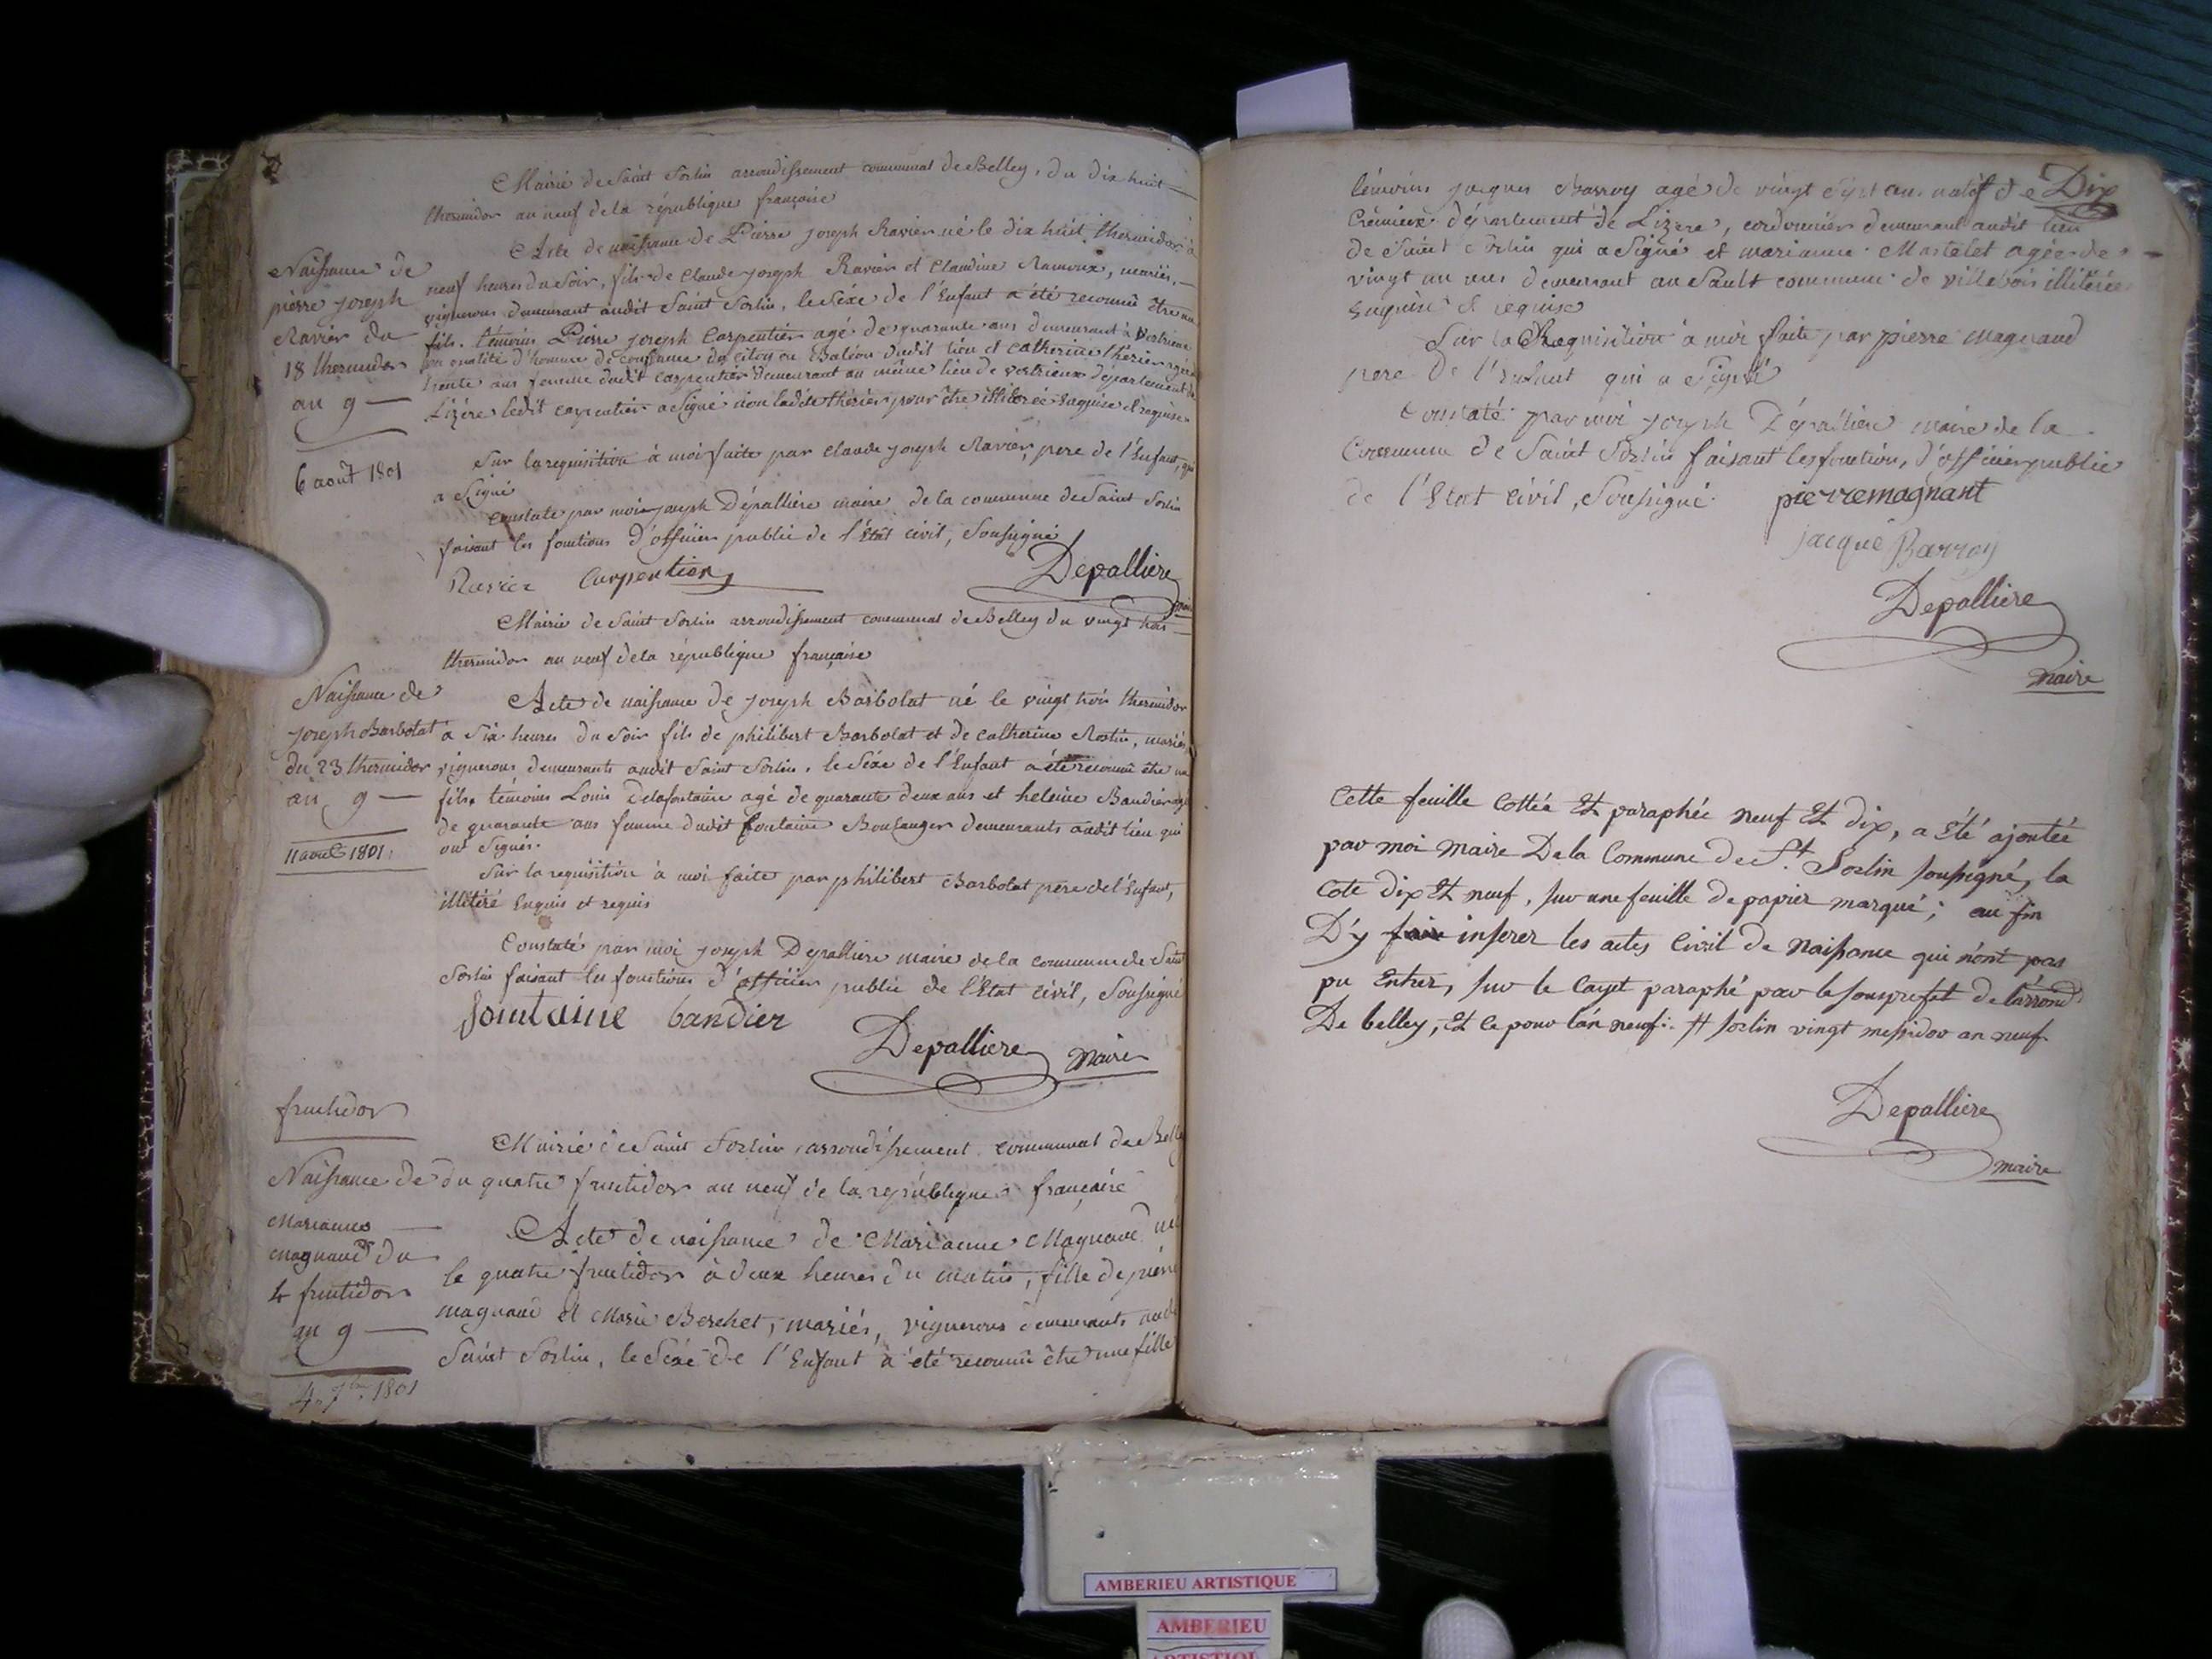 Mairie de Saint Sorlin arrondissement communal de Belley, du dix huit
thermidor an neuf de la république française
Naissance de
pierre joseph
Ravier du
18 thermidor
an 9
6 août 1801
Acte de naissance de Pierre joseph Ravier né le dix huit thermidor à
neuf heures du soir, fils de Claude joseph Ravier et Claudine Ramoux, mariés,
vignerons demeurant audit Saint Sorlin, le Séxe de l'Enfant a été reconnû être un
fils. témoins Pierre joseph Carpentier agé de quarante ans demeurant à Vertrieux
en qualité d'homme de confiance du citoyen dudit lieu et Catherine thérier agée
trente ans femme dudit carpentier demeurant au même lieu de vertrieux département de
Lizére ledit carpentier a Signé non ladite thérier pour être illiterée Enquise et requise.
Sur la requisition à moi faite par Claude joseph Ravier, pere de l'Enfant, qui
a Signé
Constaté par moi joseph Dépalliere maire de la commune de Saint Sorlin
faisant les fonctions d'officier public de l'État civil, Soussigné
Ravier Carpentier Depalliere
maire
Mairie de Saint Sorlin arrondissement communal de Belley du vingt trois
thermidor an neuf de la république française
Naissance de
joseph Barbolat
du 23 thermidor
an 9
11 aout 1801
Acte de naissance de joseph Barbolat né le vingt trois thermidor
à Six heures du Soir fils de philibert Barbolat et de catherine Rostin, mariés,
vignerons demeurants audit Saint Sorlin, le Séxe de l'Enfant a été reconnû être un
fils, témoins Louis Delafontaine agé de quarante deux ans et heleine Baudier agée
de quarante ans femme dudit fontaine Boulanger demeurants audit lieu qui
ont Signés.
Sur la requisition à moi faite par philibert Barbolat pere de l'Enfant,
illitéré Enquis et requis
Constaté par moi joseph Depalliere maire de la commune de Saint
Sorlin faisant les fonctions d'officier public de l'État civil, Soussigné
fontaine bandier
Depalliere maire
fructidor
Mairie de Saint Sorlin, arrondissement communal de Belley
du quatre fructidor an neuf de la république française
Naissance de
Marianne
magnand du
4 fructidor
an 9
4. 7bre 1801
Acte de naissance de Marianne Magnand née
le quatre fructidor à deux heures du matin, fille de pierre
magnand et Marie Berchet, mariés, vignerons demeurants audit
Saint Sorlin, le Séxe de l'Enfant a été reconnû être une fille
Dix
témoins jacques Barroy agé de vingt sept ans natif de
Crémieux département de Lizere, cordonnier demeurant audit lieu
de Saint Sorlin qui a Signé et marianne Martelet agée de
vingt un ans demeurant au Sault commune de villebois illiterée
Enquise et requise
Sur la Requisition à moi faite par pierre magnand
pere de l'Enfant qui a Signé
Constaté par moi joseph Dépalliere maire de la
Commune de Saint Sorlin faisant les fonctions, d'officier public
de l'Etat civil, Soussigné. pierremagnant
jacque Barroy
Depalliere
maire
Cette feuille Cottée Et paraphée neuf Et dix, a été ajoutée
par moi maire De la Commune de St. Sorlin soussigné, la
Cote dix Et neuf, sur une feuille de papier marqué; au fin
D'y faire inserer les actes Civil de Naissance qui n'ont pas
pu Entrer, sur le Cayet paraphé par le souspréfet de l'arrond.
De belley, Et ce pour l'an neuf. St sorlin vingt messidor an neuf
Depalliere
maire
AMBERIEU ARTISTIQUE
AMBERIEU
ARTISTIQUE